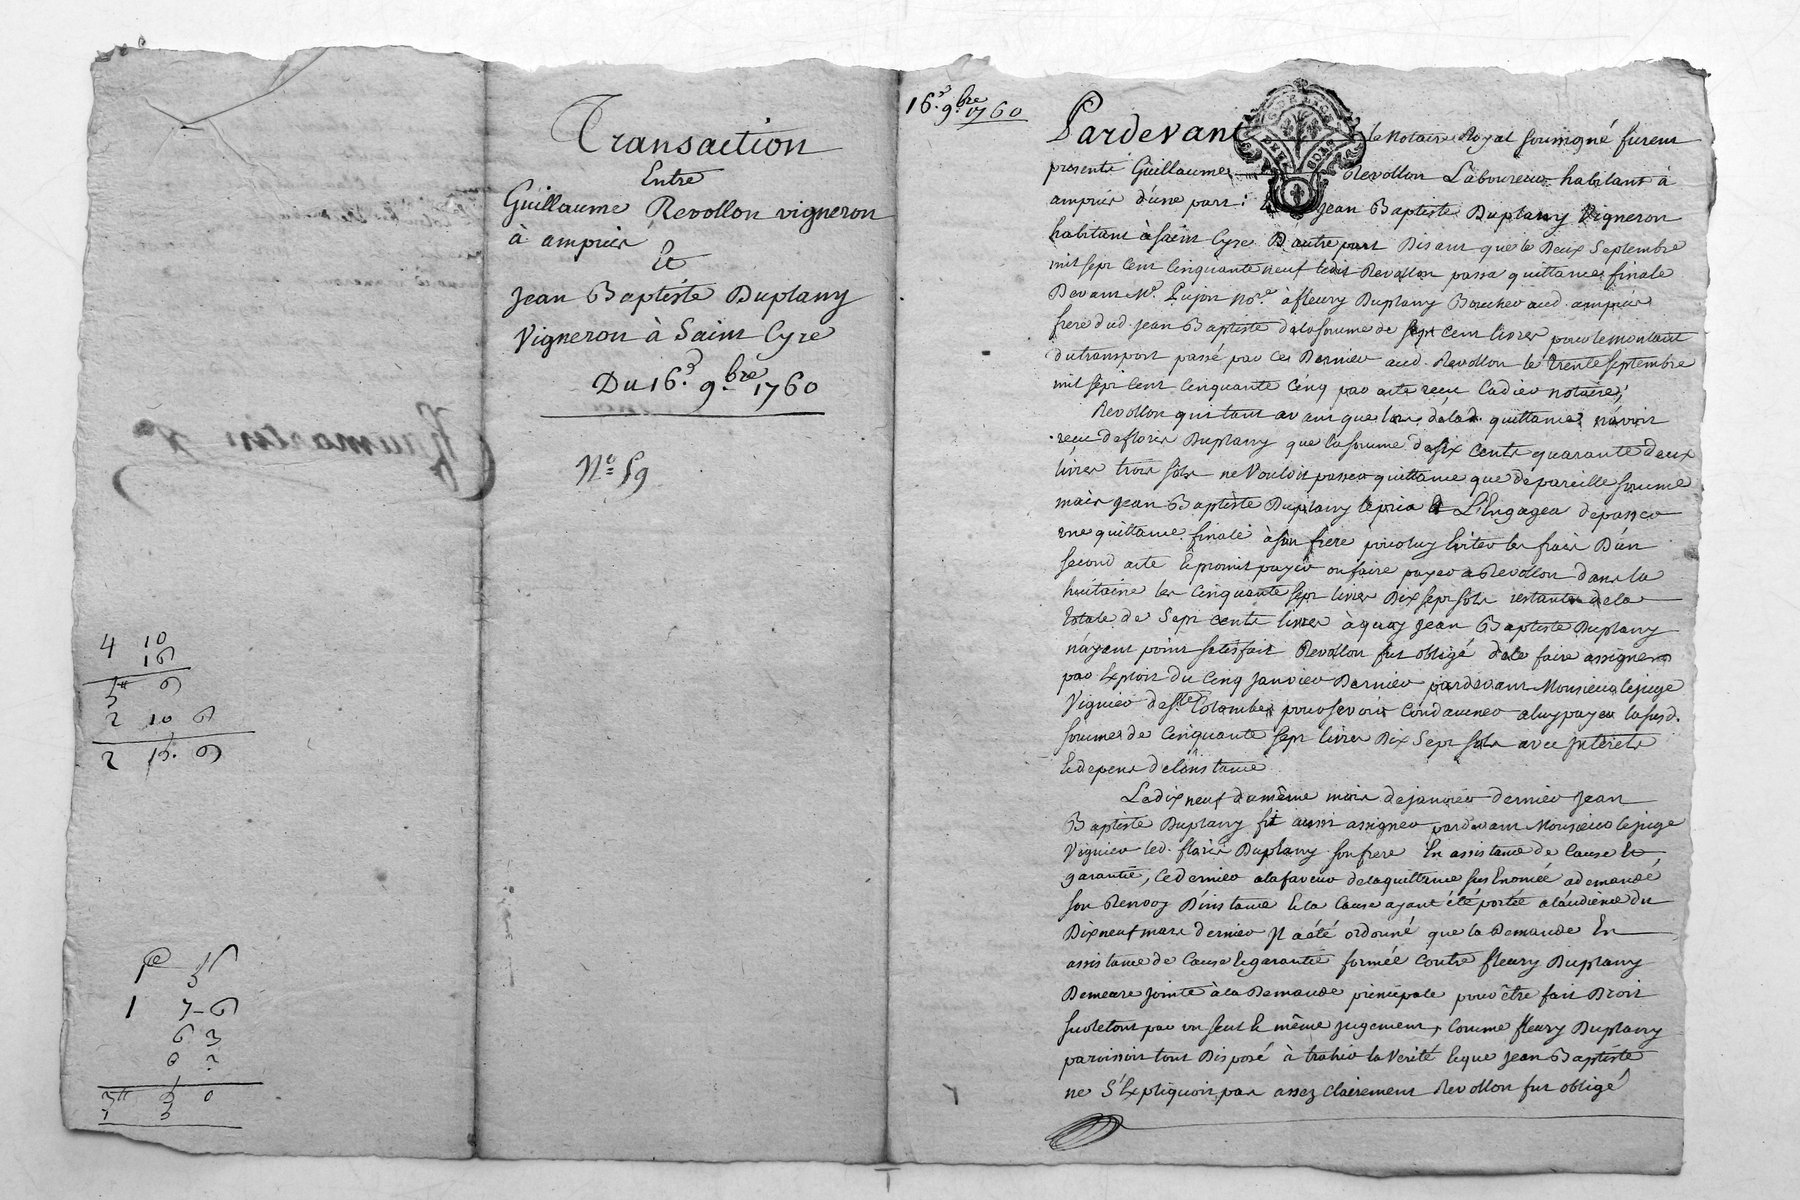 Transaction
Entre
Guillaume Revollon vigneron
à ampuis
Et
Jean Baptiste Duplany
Vigneron à Saint Cyre
Du 16.e 9.bre 1760
N.o 59
4 10
16
2 10 6
2 15. 6
16.e 9.bre 1760
Pardevant le Notaire Royal soussigné furent
presents Guillaume Revollon Laboureur habitant à
ampuis d'une part; Jean Baptiste Duplany Vigneron
habitant à saint Cyre D'autre part Disant que le Deux Septembre
mil sept Cent Cinquante neuf ledit Revollon passa quittance finale
Devant M.e Pujon No.re à fleury Duplany Boucher aud. ampuis
frere dud. Jean Baptiste de la somme de sept Cent livres pour le montant
du transport passé par Ce Dernier aud. Revollon le trente septembre
mil sept Cent Cinquante Cinq par acte reçu Cadier notaire;
Revollon qui tant avant que lors de lad. quittance n'avoit
reçu de floris Duplany que la somme de six Cents quarante deux
livres trois sols ne Vouloit passer quittance que de pareille somme
mais Jean Baptiste Duplany le pria & L'Engagea de passer
une quittance finale à son frere pour luy Eviter les frais D'un
second acte Et promit payer ou faire payer a Revollon dans la
huitaine les Cinquante sept livres Dix sept sols restants de la
totale de Sept Cents livres à quoy Jean Baptiste Duplany
n'ayant point satisfait Revollon fut obligé de le faire assigner
par Exploit du Cinq Janvier Dernier pardevant Monsieur le juge
Viguier de S.te Colombe pour se voir Condamner a luy payer la susd.
somme de Cinquante sept livres Dix Sept sols avec interêts
Et depens de l'instance
Le dix neuf du même mois de janvier dernier Jean
Baptiste Duplany fit aussi assigner pardevant Monsieur le juge
Viguier led. floris Duplany son frere En assistance de Cause Et
garantie, Ce dernier a la faveur de la quittance sus Enoncée a demandé
son Renvoy D'instance Et la Cause ayant été portée a l'audience du
Dix neuf mars dernier Il a été ordonné que la Demande En
assistance de Cause Et garantie formée Contre fleury Duplany
Demeure jointe à la Demande principale pour être fait Droit
sur le tout par un seul Et même jugement, Comme fleury Duplany
paroissoit tout Disposé à trahir la Verité Et que Jean Baptiste
ne S'Expliquoit pas assez Clairement Revollon fut obligé